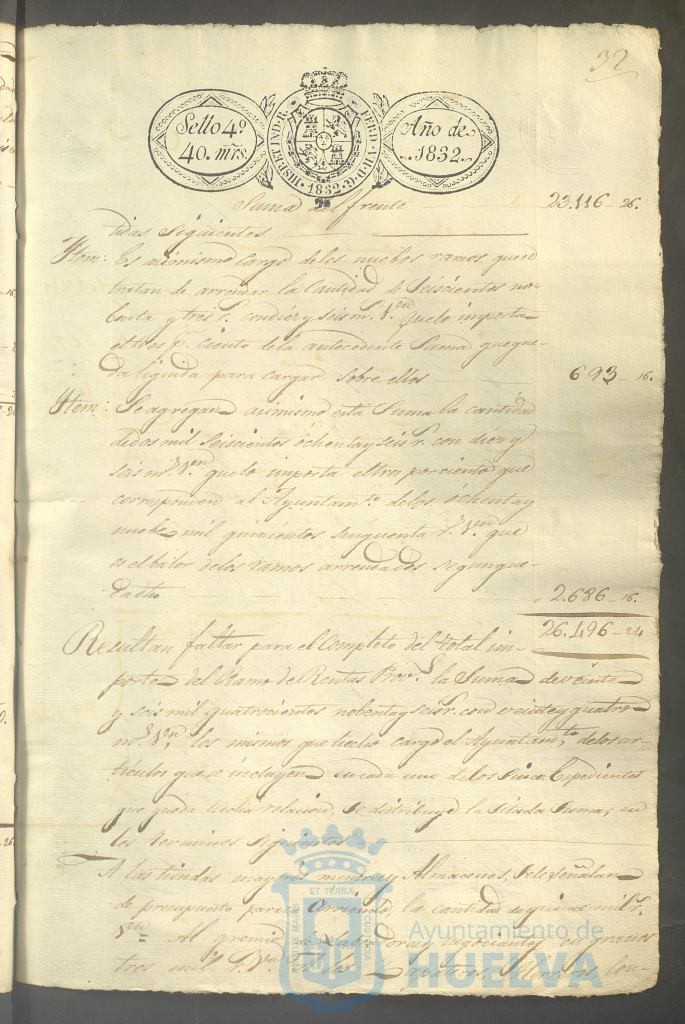 32
Sello 4º
40. mrs.
HISP. ET IND. R. FERD. VII. D. G.
1832
Año de
1832.
Suma del frente 23.116 - 26.
tidas siguientes
Item: Es asimismo cargo delos nuebos ramos que se
tratan de arrendar la Cantidad de Seiscientos no-
benta y tres r. con diez y seis m.s V.on que lo importa
el tres p. ciento dela antecedente Suma que que-
da liquida para cargar sobre ellos 693 - 16.
Item: Se agregan asimismo esta Suma la cantidad
de dos mil seiscientos ochenta y seis r. con diez y
seis m.s V.on que lo importa el tres por ciento que
corresponden al Ayuntam.to delos ochenta y
nuebe mil quinientos sinquenta r.s V.on que
es el balor delos ramos arrendados segun que-
da dho 2.686 - 16.
26.496 - 24
Resultan faltar para el Completo del total im-
porte del Ramo de Rentas Prov.s la Suma de veinte
y seis mil quatrocientos nobenta y seis r. con veinte y quatro
m.s V.on, los mismos que hecho cargo el Ayuntam.to delos ar-
ticulos que se incluyen en cada uno delos Expedientes
que queda hecha relacion, se distribuye la sitada Suma, en
los terminos siguientes
A las tiendas mayores menores y Almacenes, Se le señalan
de presupuesto para su Arriendo, la cantidad de quince mil r.s
V.on Al gremio de Labradores y negociantes en granos
tres mil r.s V.on
ET TERRAE
CUSTODIA
Ayuntamiento de
HUELVA